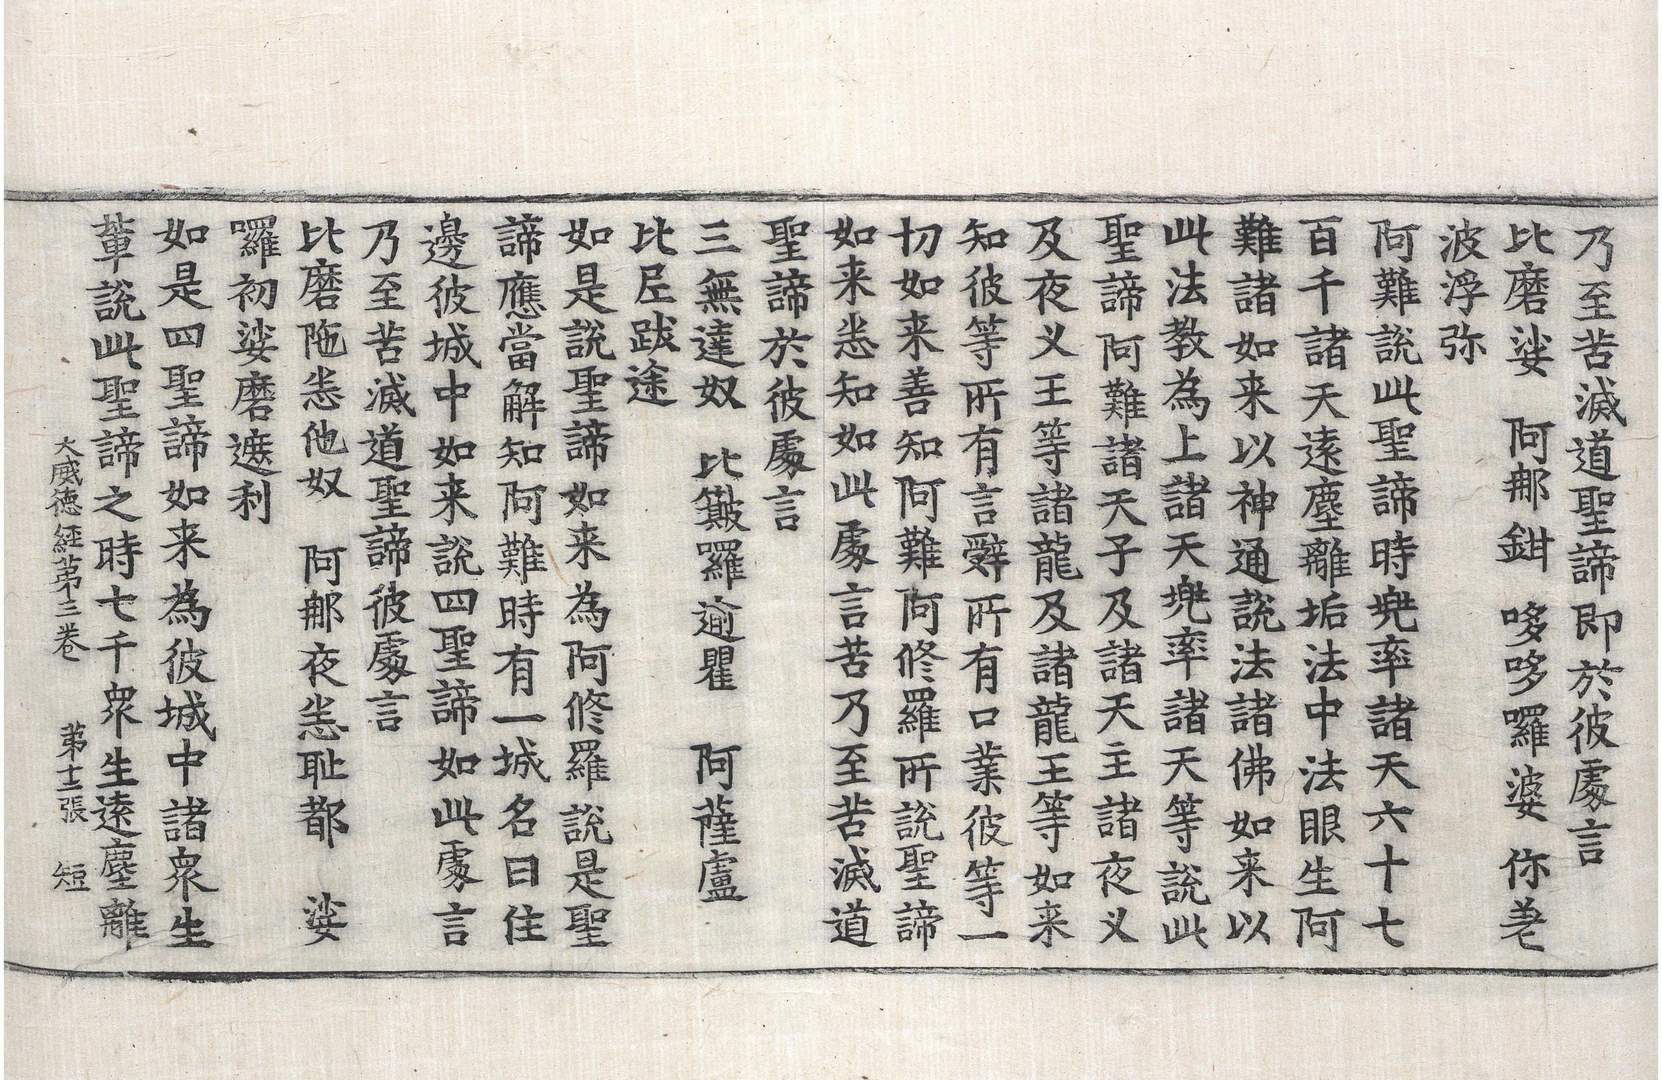 乃至苦滅道聖諦即於彼䖏言
比磨娑　阿那鉗　哆哆囉婆　你荖
波浮弥
阿難說此聖諦時兠率諸天六十七
百千諸天遠塵離垢法中法眼生阿
難諸如来以神通說法諸佛如来以
此法教為上諸天兠率諸天等說此
聖諦阿難諸天子及諸天主諸夜义
及夜义王等諸龍及諸龍王等如来
知彼等所有言辭所有口業彼等一
切如来善知阿難阿修羅所說聖諦
如来悉知如此䖏言苦乃至苦滅道
聖諦於彼䖏言
三無達奴　比羅逾瞿　阿薩盧
比𡰱跋途
如是說聖諦如来為阿修羅說是聖
諦應當解知阿難時有一城名曰住
邊彼城中如来說四聖諦如此䖏言
乃至苦滅道聖諦彼䖏言
比磨陁恙他奴　阿那夜恙耻都　娑
囉初娑磨遮利
如是四聖諦如来為彼城中諸衆生
軰說此聖諦之時七千衆生遠塵離
大威德經苐三卷　苐十二張　短